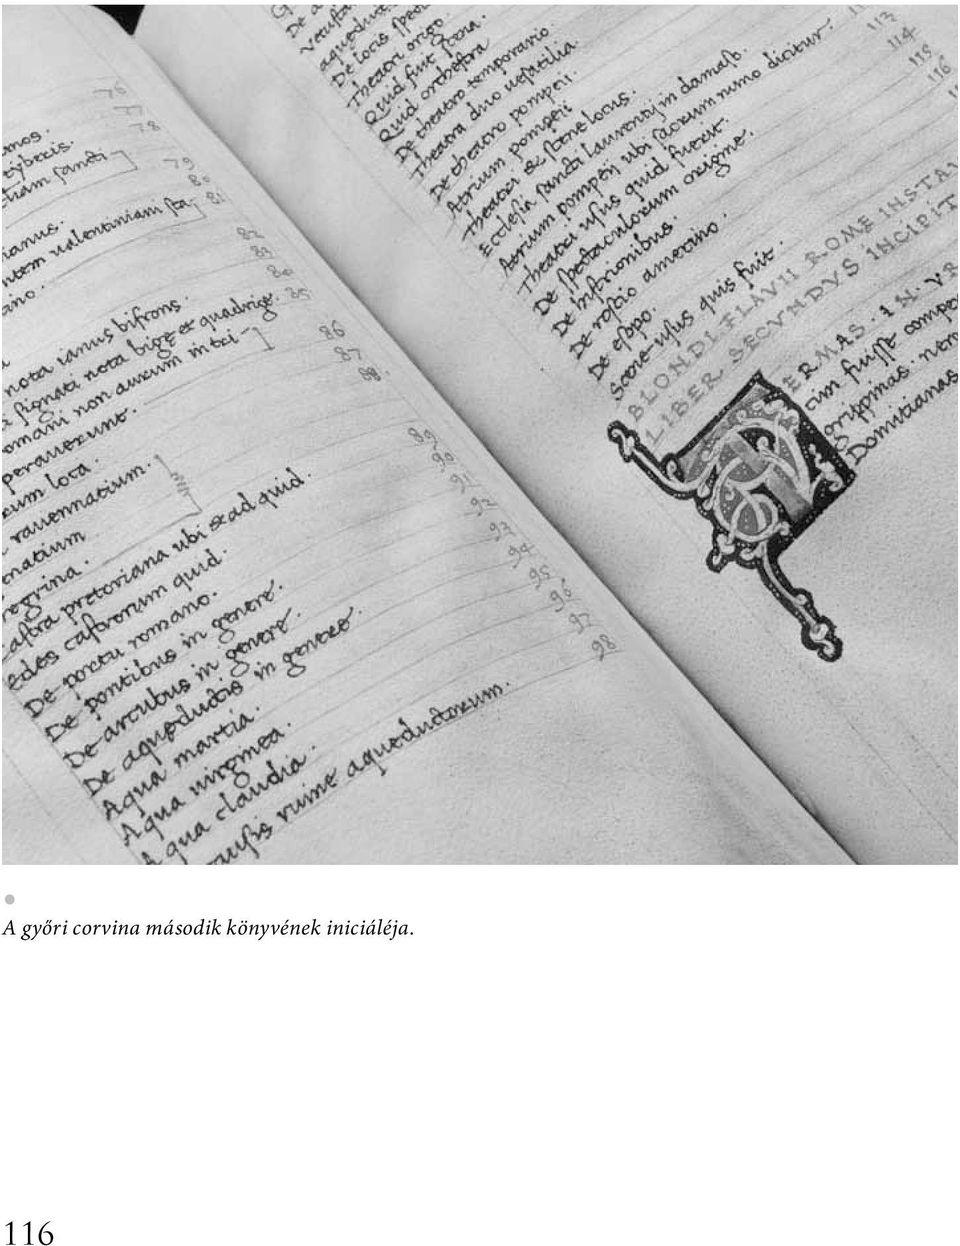 76
77
78
79
80
81
ianus.
ntem ualentiniam sta
82
83
84
nota ianus bifrons.
signati nota bige et quadrige. 85
omani non aurum
86
perauerunt.
87
88
rum lota.
89
rauennatium.
90
natium
91
regrina.
92
astra pretoriana ubi et ad quid.
93
edes castrorum quid.
94
De portu romano.
95
De pontibus in genere.
96
De arcubus in genere.
97
De aqueductis in genere.
98
Aqua martia.
Aqua uirginea.
Aqua claudia.
ruine aqueductorum.
De locis
Theatri origo.
Quid fuit scena.
Quid orchestra
De theatro temporario.
Theatra duo uersatilia.
De theatro pompeii.
Atrium pompeii
Theatri et scene locus.
Ecclesia sancti laurentij in damaso.
Atrium pompeij ubi sacrum nunc dicitur.
Theatri usus quid fuerit.
De spectaculorum origine.
De histrionibus.
De roscio amerino.
De esopo.
Scene usus quis fuit.
113
114
115
116
BLONDI FLAVII ROME INSTAV
LIBER SECVNDVS INCIPIT
ERMAS IN VR
tim fuisse compe
grippinas. nero
Domitianas
A győri corvina második könyvének iniciáléja.
116